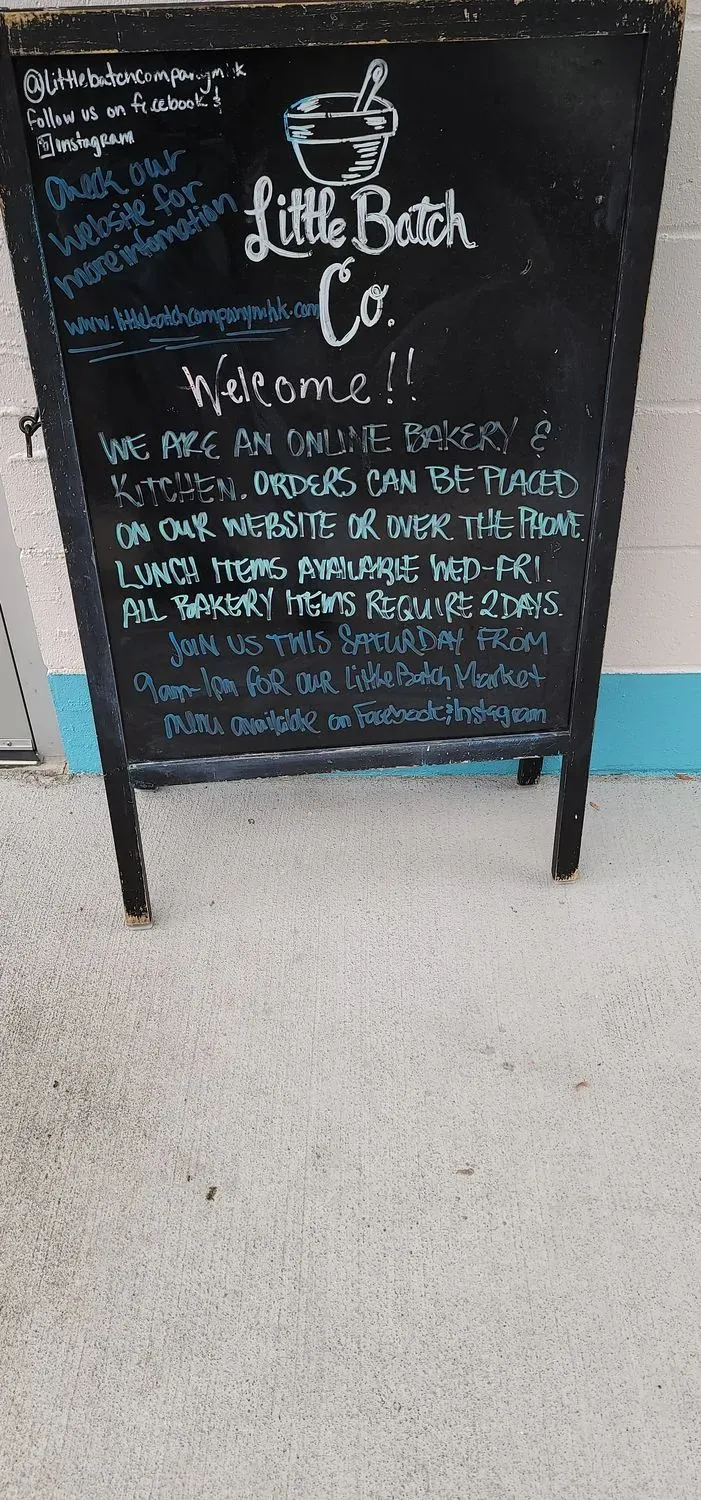 @littlebatchcompanymhk
follow us on facebook &
instagram
Check our
website for
more infomation
www.littlebatchcompanymhk.com
Little Batch
Co.
Welcome!!
WE ARE AN ONLINE BAKERY &
KITCHEN. ORDERS CAN BE PLACED
ON OUR WEBSITE OR OVER THE PHONE.
LUNCH ITEMS AVAILABLE WED-FRI.
ALL BAKERY ITEMS REQUIRE 2DAYS.
JOIN US THIS SATURDAY FROM
9am-1pm FOR OUR Little Batch Market
menu available on Facebook & Instagram